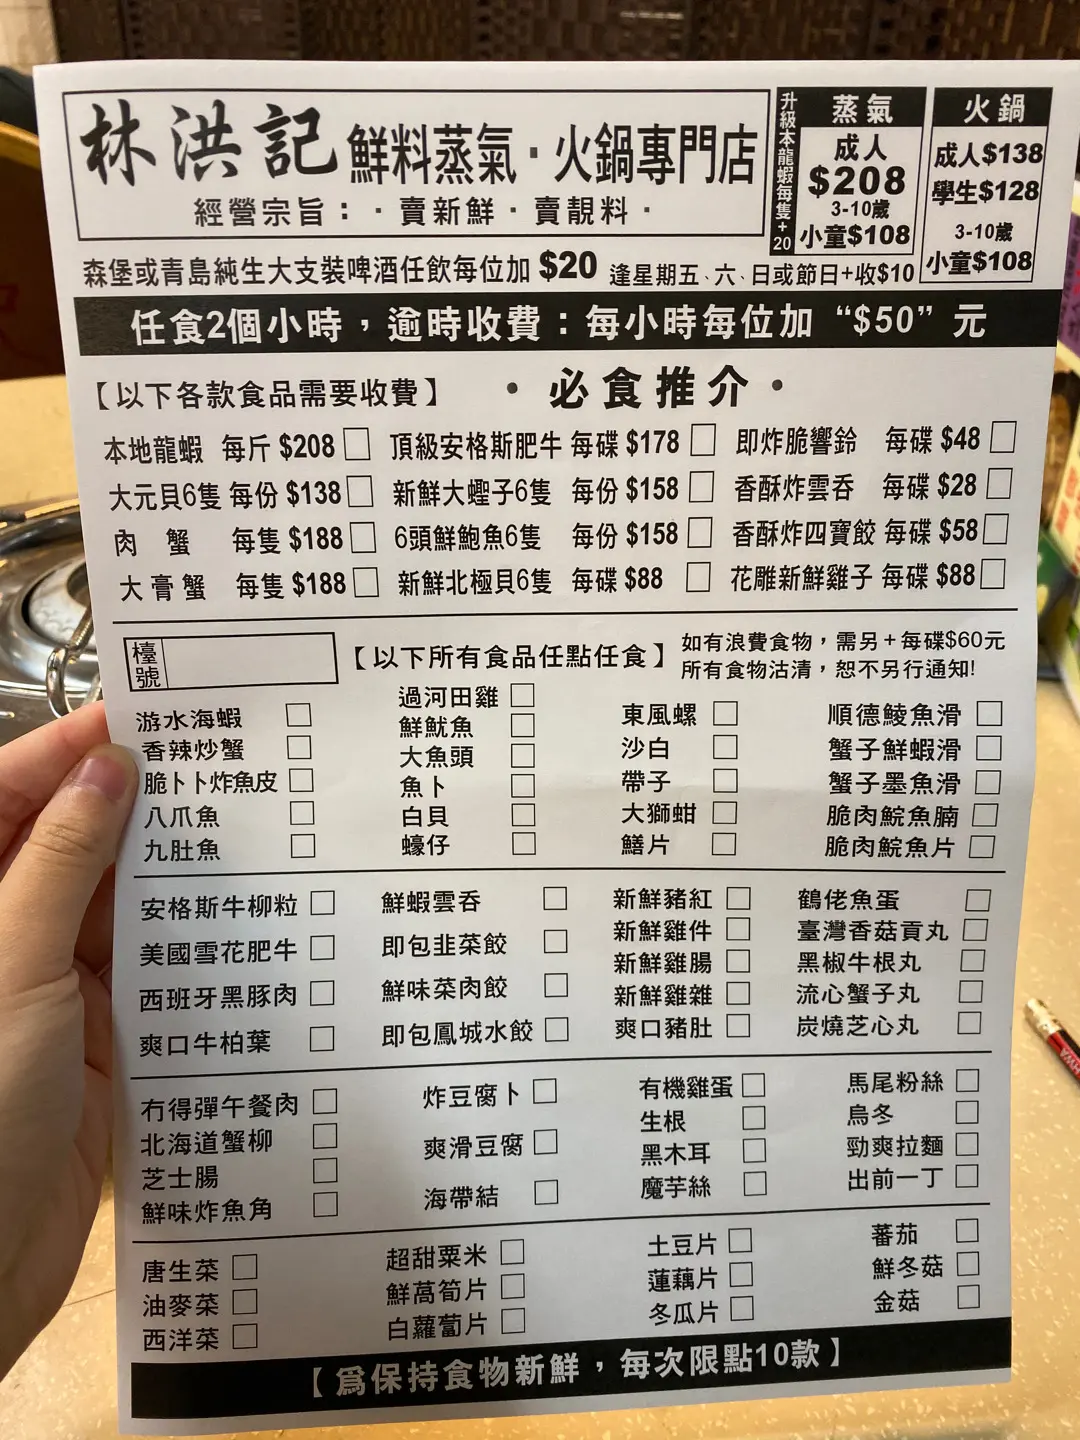 林洪記 鮮料蒸氣·火鍋專門店
經營宗旨：·賣新鮮·賣靚料·
升級本龍蝦每隻+20
蒸氣
成人
$208
3-10歲
小童$108
火鍋
成人$138
學生$128
3-10歲
小童$108
森堡或青島純生大支裝啤酒任飲每位加 $20 逢星期五、六、日或節日+收$10
任食2個小時，逾時收費：每小時每位加“$50”元
【以下各款食品需要收費】 ·必食推介·
本地龍蝦 每斤 $208 頂級安格斯肥牛 每碟 $178 即炸脆響鈴 每碟 $48
大元貝6隻 每份 $138 新鮮大蟶子6隻 每份 $158 香酥炸雲吞 每碟 $28
肉蟹 每隻 $188 6頭鮮鮑魚6隻 每份 $158 香酥炸四寶餃 每碟 $58
大膏蟹 每隻 $188 新鮮北極貝6隻 每碟 $88 花雕新鮮雞子 每碟 $88
檯號
【以下所有食品任點任食】
如有浪費食物，需另+每碟$60元
所有食物沽清，恕不另行通知!
游水海蝦
香辣炒蟹
脆卜卜炸魚皮
八爪魚
九肚魚
過河田雞
鮮魷魚
大魚頭
魚卜
白貝
蠔仔
東風螺
沙白
帶子
大獅蚶
鱔片
順德鯪魚滑
蟹子鮮蝦滑
蟹子墨魚滑
脆肉鯇魚腩
脆肉鯇魚片
安格斯牛柳粒
美國雪花肥牛
西班牙黑豚肉
爽口牛柏葉
鮮蝦雲吞
即包韭菜餃
鮮味菜肉餃
即包鳳城水餃
新鮮豬紅
新鮮雞件
新鮮雞腸
新鮮雞雜
爽口豬肚
鶴佬魚蛋
臺灣香菇貢丸
黑椒牛根丸
流心蟹子丸
炭燒芝心丸
冇得彈午餐肉
北海道蟹柳
芝士腸
鮮味炸魚角
炸豆腐卜
爽滑豆腐
海帶結
有機雞蛋
生根
黑木耳
魔芋絲
馬尾粉絲
烏冬
勁爽拉麵
出前一丁
唐生菜
油麥菜
西洋菜
超甜粟米
鮮萵筍片
白蘿蔔片
土豆片
蓮藕片
冬瓜片
蕃茄
鮮冬菇
金菇
【為保持食物新鮮，每次限點10款】